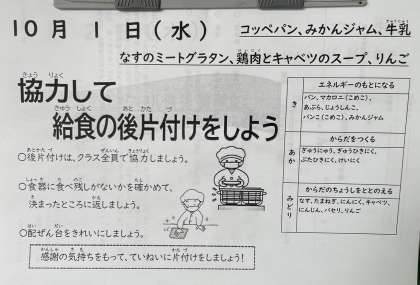 10月 1日(水)
コッペパン、みかんジャム、牛乳
なすのミートグラタン、鶏肉とキャベツのスープ、りんご
協力して
給食の後片付けをしよう
○後片付けは、クラス全員で協力しましょう。
○食器に食べ残しがないかを確かめて、
決まったところに返しましょう。
○配ぜん台をきれいにしましょう。
感謝の気持ちをもって、ていねいに片付けをしましょう!
き
エネルギーのもとになる
パン、マカロニ(こめこ)、
あぶら、じょうしんこ、
パンこ(こめこ)、みかんジャム
あか
からだをつくる
ぎゅうにゅう、ぎゅうひきにく、
ぶたひきにく、けいにく
みどり
からだのちょうしをととのえる
なす、たまねぎ、にんにく、キャベツ、
にんじん、パセリ、りんご